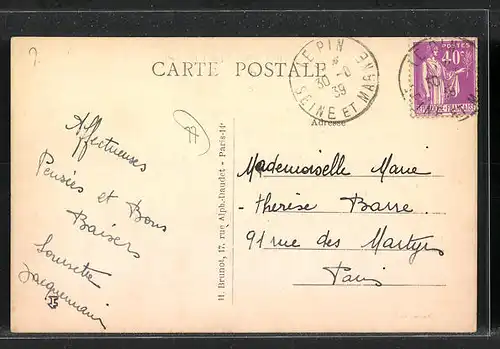 7.
CARTE POSTALE
LE PIN
30 -
39
SEINE ET MARNE
POSTES
40c
Adresse
77
Affectueuses
Pensées et Bons
Baisers
Jacquemain
H. Brunot, 17, rue Alph.-Daudet - Paris-14e
Mademoiselle Marie
thérèse Barre
91 rue des Martyrs
Paris